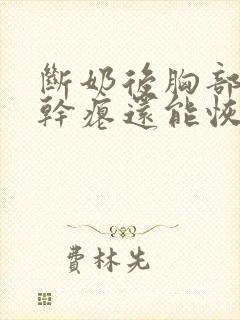 斷奶後胸部
幹癟還能恢
費林先